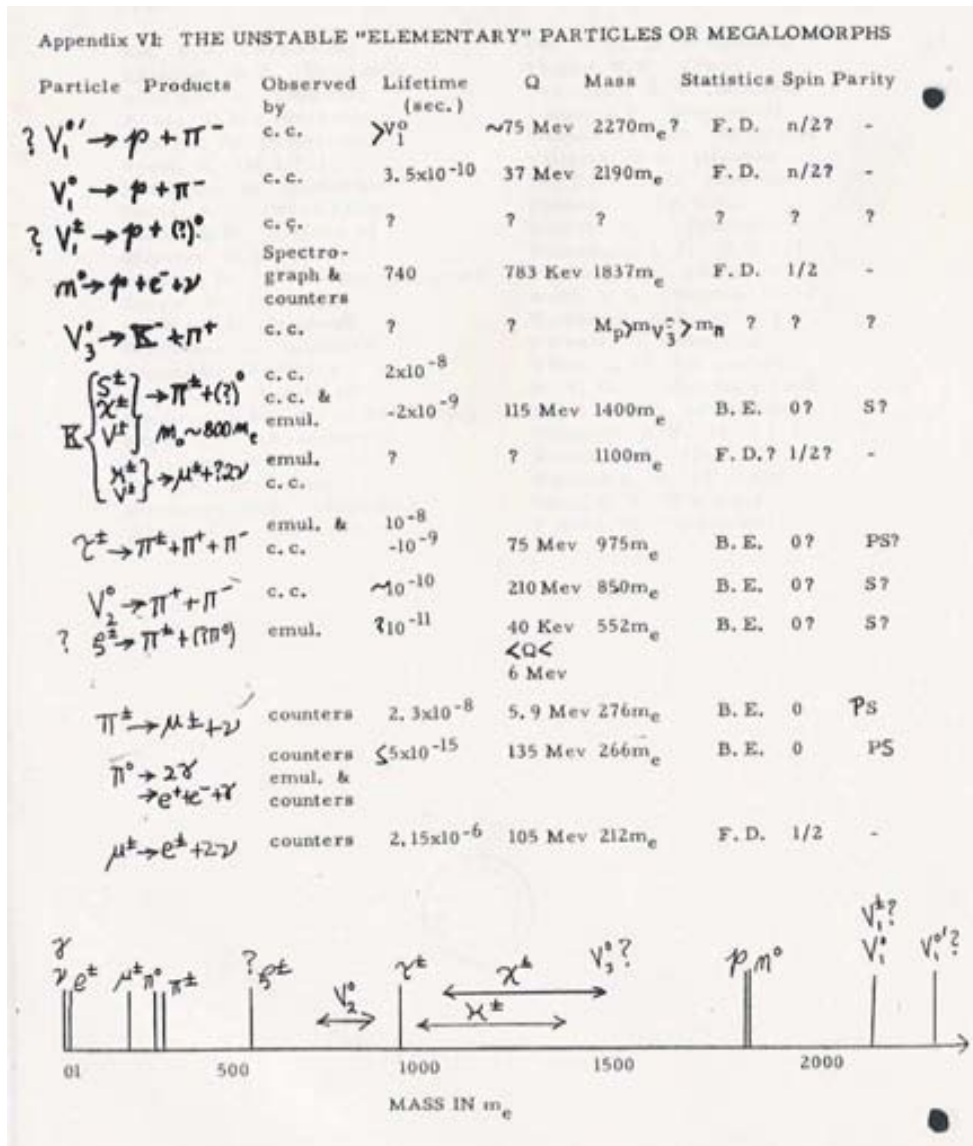 Appendix VI: THE UNSTABLE "ELEMENTARY" PARTICLES OR MEGALOMORPHS
Particle Products Observed by Lifetime (sec.) Q Mass Statistics Spin Parity
? V₁⁰' → p + π⁻ c.c. >V₁⁰ ~75 Mev 2270mₑ? F.D. n/2? -
V₁⁰ → p + π⁻ c.c. 3.5x10⁻¹⁰ 37 Mev 2190mₑ F.D. n/2? -
? V₁± → p + (?)⁰ c.c. ? ? ? ? ? ?
n⁰ → p + e⁻ + ν Spectro-
graph & 740 783 Kev 1837mₑ F.D. 1/2 -
counters
V₃⁰ → K⁻ + π⁺ c.c. ? ? Mₚ>m V₃⁰ >m ? ? ?
K { S± c.c. 2x10⁻⁸
χ± → π± + (?)⁰ c.c. &
V± m₀~800mₑ emul. -2x10⁻⁹ 115 Mev 1400mₑ B.E. 0? S?
κ± → μ± + ?2ν emul. ? ? 1100mₑ F.D.? 1/2? -
V± c.c.
emul. & 10⁻⁸
τ± → π± + π⁺ + π⁻ c.c. -10⁻⁹ 75 Mev 975mₑ B.E. 0? PS?
V₂⁰ → π⁺ + π⁻ c.c. ~10⁻¹⁰ 210 Mev 850mₑ B.E. 0? S?
? ζ± → π± + (?π⁰) emul. 10⁻¹¹ 40 Kev 552mₑ B.E. 0? S?
<Q<
6 Mev
π± → μ± + ν counters 2.3x10⁻⁸ 5.9 Mev 276mₑ B.E. 0 PS
π⁰ → 2γ counters ≤5x10⁻¹⁵ 135 Mev 266mₑ B.E. 0 PS
→ e⁺ + e⁻ + γ emul. &
counters
μ± → e± + 2ν counters 2.15x10⁻⁶ 105 Mev 212mₑ F.D. 1/2 -
V₁±?
γ
ν e± μ± π⁰ π± ? ζ± V₂⁰ τ± χ± V₃⁰? p n⁰ V₁⁰ V₁⁰'?
κ±
01 500 1000 1500 2000
MASS IN mₑ